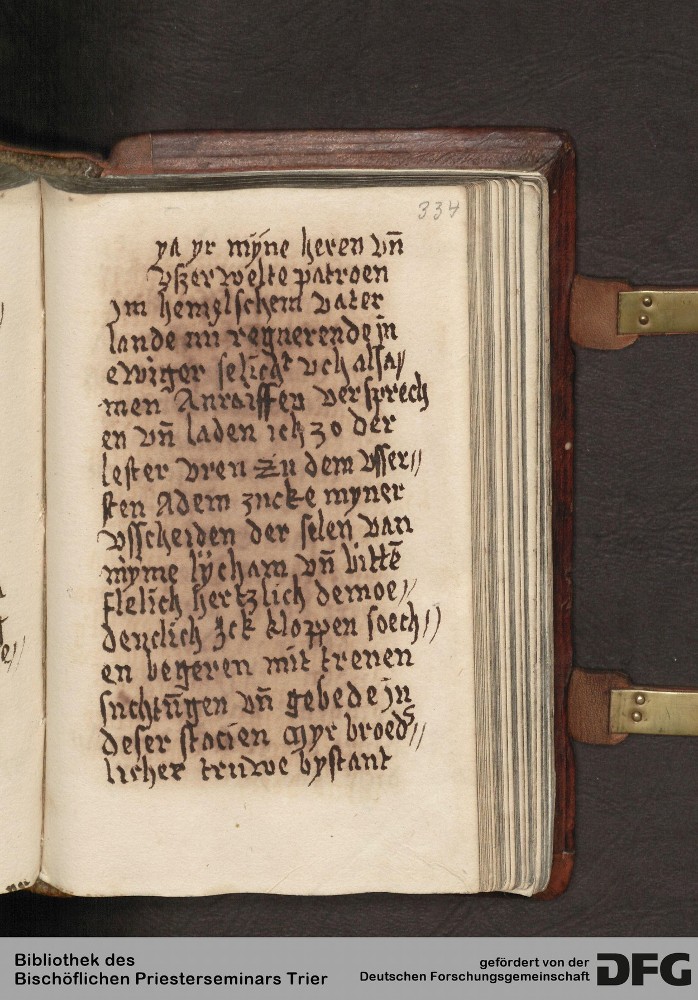 334
ya yr mÿne heren vn̄
vßerwelte patroen
jm hemelschem vater
lande nu regnerende jn
ewiger selicht vch alsa//
men Anroiffen versprech
en vn̄ laden ich zo der
lester vren zu dem vsser//
sten Adem zucke myner
vsscheiden der selen van
myme lÿcham vn̄ bitte̅
flelich hertzlich demoe//
denclich Jck kloppen soech//
en begeren mit trenen
suchtu̅gen vn̄ gebede jn
deser stacien myr broed//
licher truwe bystant
Bibliothek des
Bischöflichen Priesterseminars Trier
gefördert von der
Deutschen Forschungsgemeinschaft
DFG